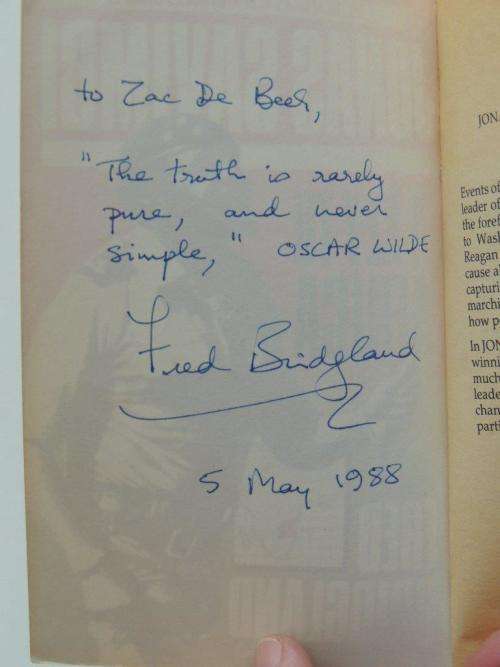 to Zac De Beer,
"The truth is rarely
pure, and never
simple,"  OSCAR WILDE
Fred Bridgland
5 May 1988
JON
Events of
leader of
the foref
to Wash
Reagan
cause a
capturi
marchi
how p
In JON
winni
much
leade
chan
parti